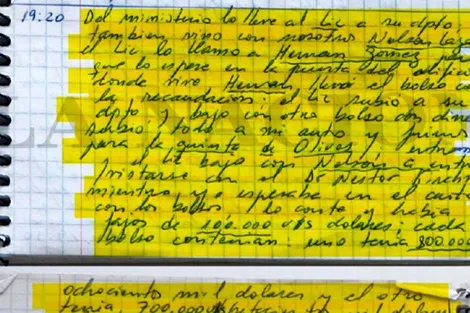 19:20 Del ministerio lo lleve al Lic a su dpto
tambien vino con nosotros Nelson
el Lic lo llamo a Hernan Gomez
que lo espere en la puerta del edificio
donde vive Hernan llevó el bolso
la recaudacion; el Lic subio a su
dpto y bajo con otro bolso con
subio todo a mi auto y fuimos
para la quinta de Olivos,
y el Lic bajo con Nelson a
tristarse con el Dr Nestor
mientras yo esperaba en el
con los bolsos, lo conte y habia
fajos de 100.000 U$S dolares; cada
bolso contenian: uno tenia 800.000
ochociento mil dolares y el otro
tenia, 700.000